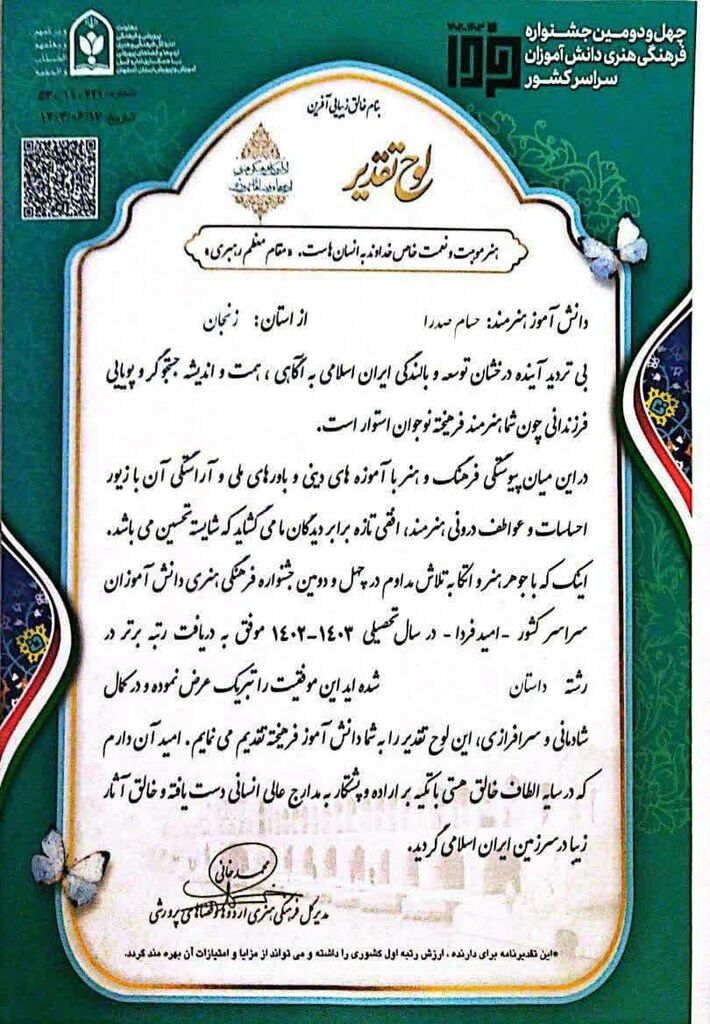 چهل‌ودومین جشنواره
فرهنگی هنری دانش آموزان
سراسر کشور
فردا
۱۴۰۲-۱۴۰۳
معاونت
پرورشی و فرهنگی
تاریخ: ۱۴۰۳/۰۶/۱۷
بنام خالق زیبایی آفرین
لوح تقدیر
هنر موهبت و نعمت خاص خداوند به انسان هاست. «مقام معظم رهبری»
دانش آموز هنرمند: حسام صدرا از استان: زنجان
بی تردید آینده درخشان توسعه و بالندگی ایران اسلامی به آگاهی ، همت و اندیشه جستجوگر و پویایی
فرزندانی چون شما هنرمند فرهیخته نوجوان استوار است.
در این میان پیوستگی فرهنگ و هنر با آموزه های دینی و باورهای ملی و آراستگی آن با زیور
احساسات و عواطف درونی هنرمند، افقی تازه برابر دیدگان ما می گشاید که شایسته تحسین می باشد.
اینک که با جوهر هنر و اتکا به تلاش مداوم در چهل و دومین جشنواره فرهنگی هنری دانش آموزان
سراسر کشور -امید فردا- در سال تحصیلی ۱۴۰۳-۱۴۰۲ موفق به دریافت رتبه برتر در
رشته داستان شده اید این موفقیت را تبریک عرض نموده و در کمال
شادمانی و سرافرازی، این لوح تقدیر را به شما دانش آموز فرهیخته تقدیم می نمایم. امید آن دارم
که در سایه الطاف خالق هستی با تکیه بر اراده و پشتکار به مدارج عالی انسانی دست یافته و خالق آثار
زیبا در سرزمین ایران اسلامی گردید.
محمد خانی
مدیرکل فرهنگی هنری اردوها و فضاهای پرورشی
*این تقدیرنامه برای دارنده ، ارزش رتبه اول کشوری را داشته و می تواند از مزایا و امتیازات آن بهره مند گردد.